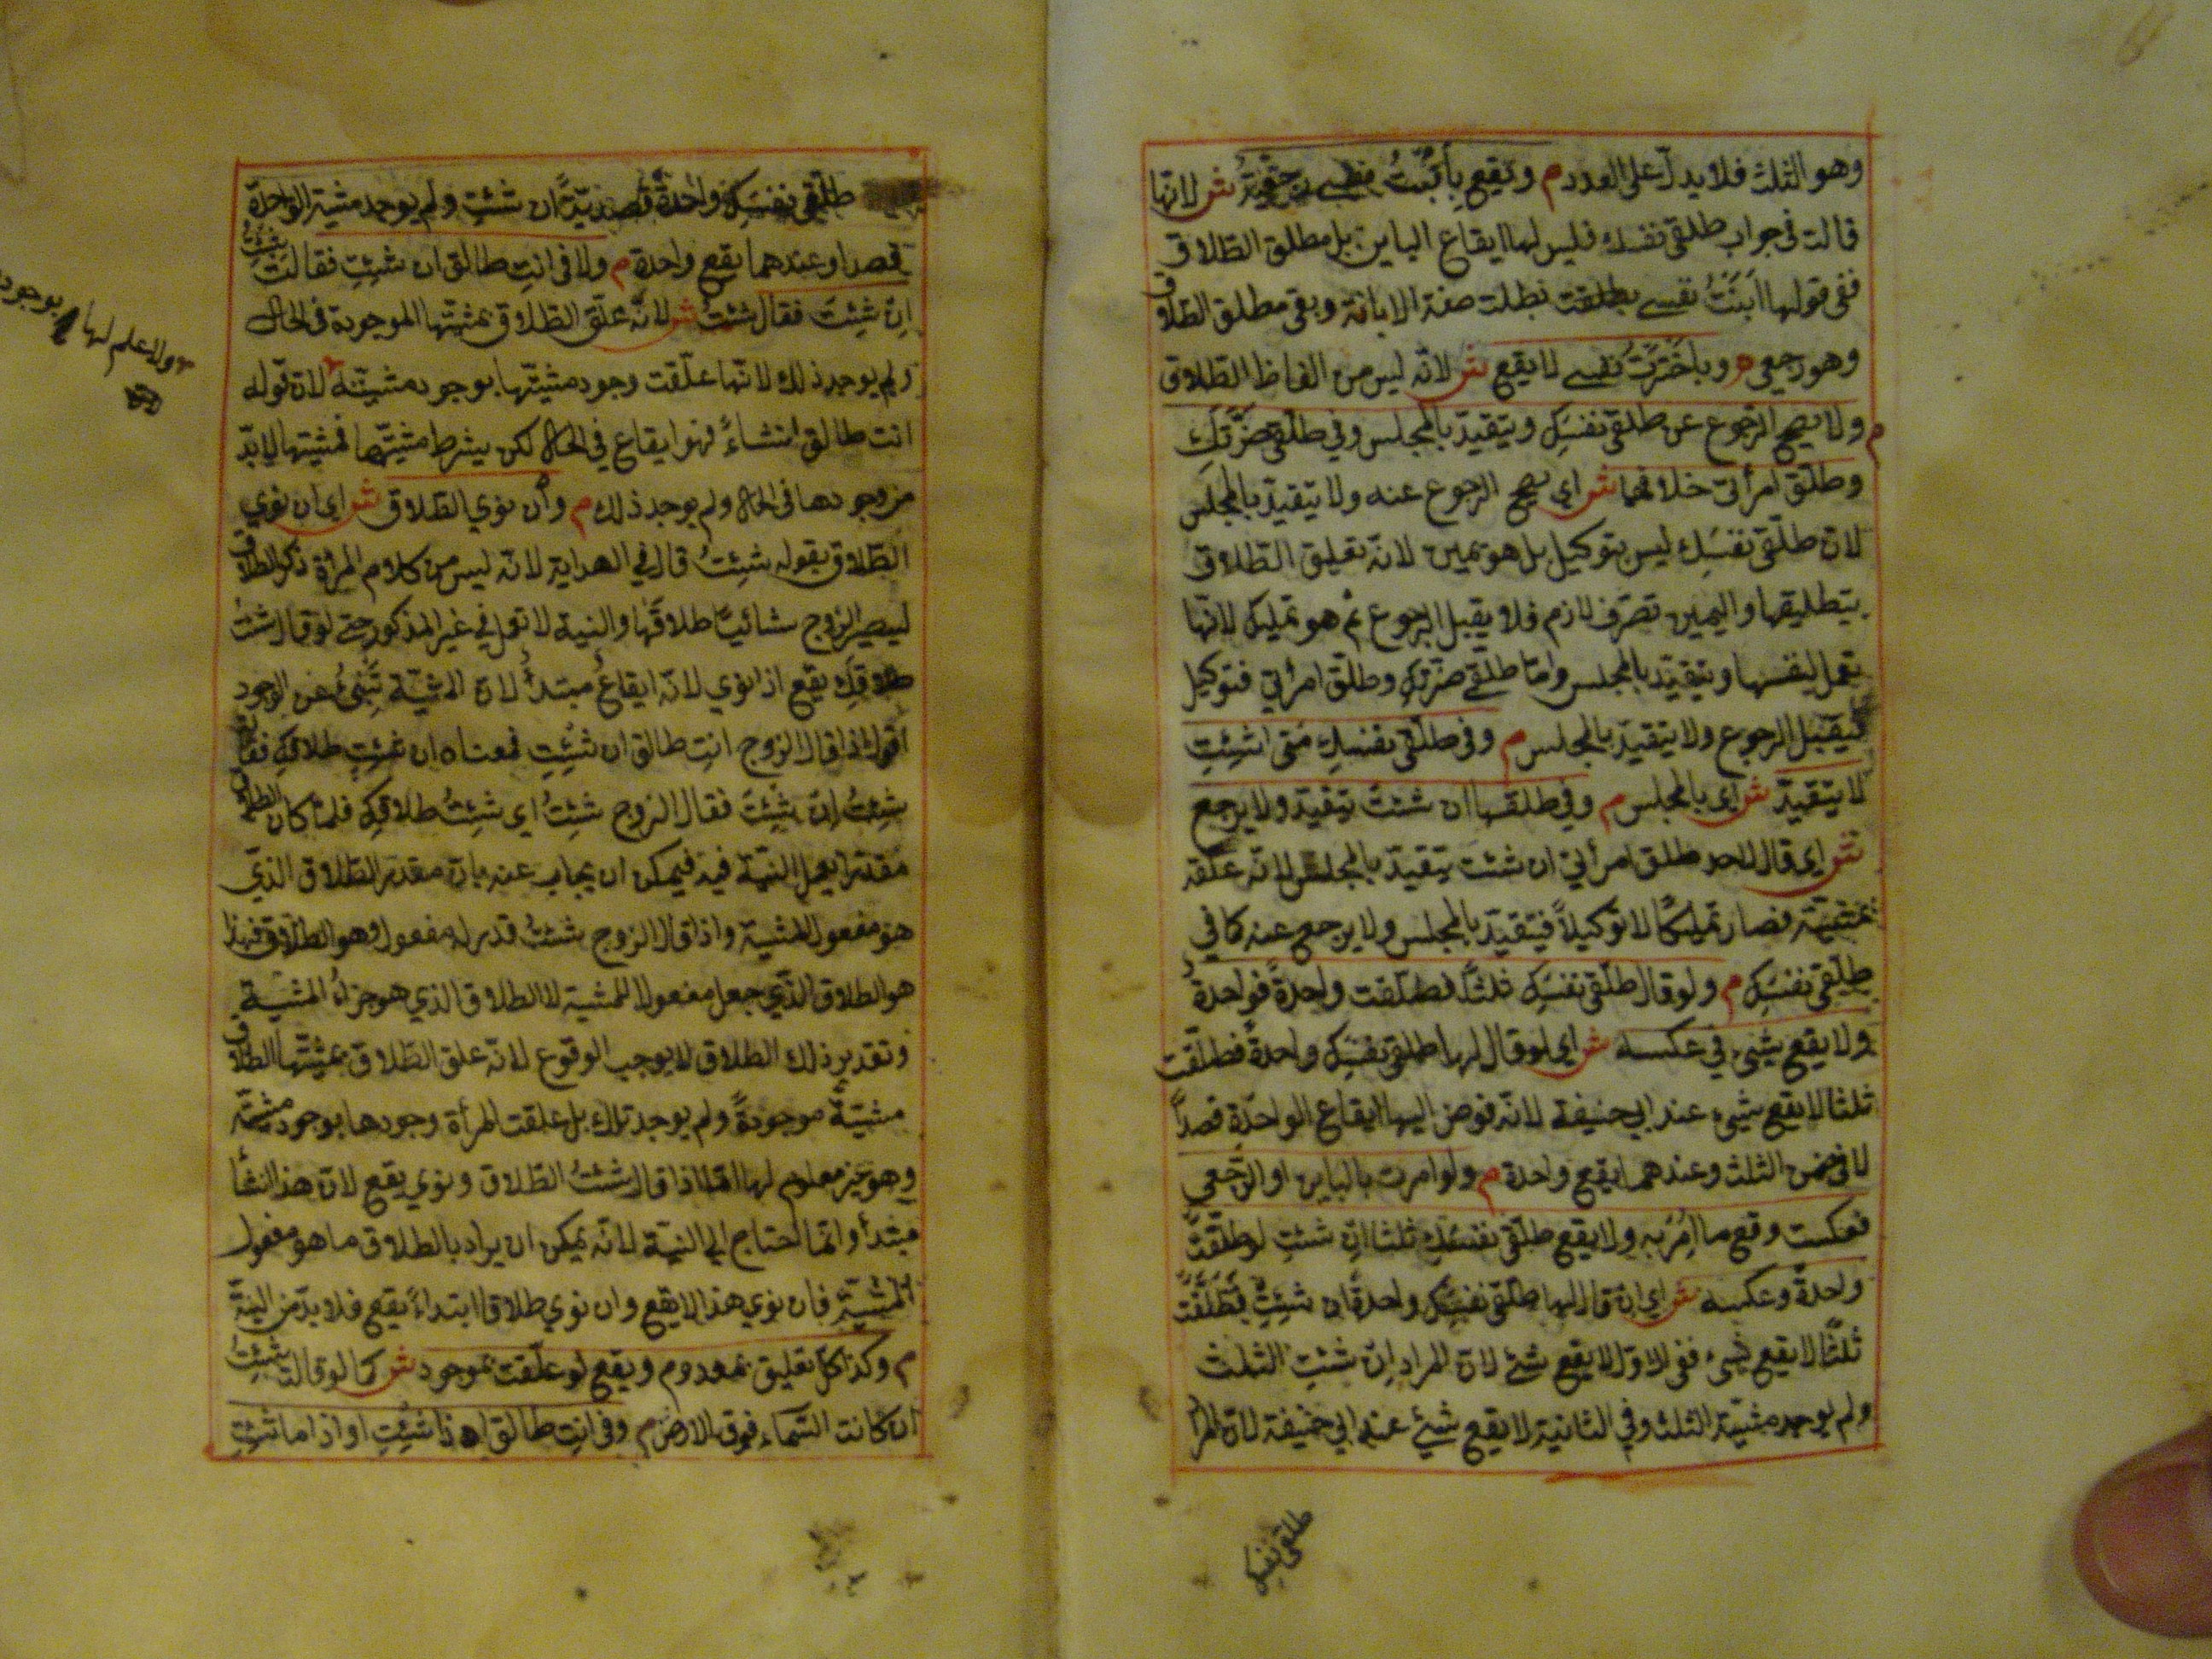 وهو الثلث فلا يدل على العدد م وتقيع بأبنت نفسى رجعية ش لانها
قالت فى جواب طلقى نفسك فليس لها ايقاع الباين بل مطلق الطلاق
ففى قولها ابنت نفسى بطلت صفة الابانة وبقى مطلق الطلاق
وهو رجعى م وباخترت نفسى لا يقع ش لانه ليس من الفاظ الطلاق
م ولا يصح الرجوع عن طلقى نفسك ويتقيد بالمجلس وفي طلقى ضرتك
وطلق امرأتى خلافهما ش اي يصح الرجوع عنه ولا يتقيد بالمجلس
لان طلقى نفسك ليس بتوكيل بل هو يمين لانه تعليق الطلاق
بتطليقها واليمين تصرف لازم فلا يقبل الرجوع ثم هو تمليك لانها
تعمل لنفسها ويتقيد بالمجلس واما طلقى ضرتك وطلق امرأتى فتوكيل
فيقبل الرجوع ولا يتقيد بالمجلس م وفى طلقى نفسك متى شئت
لا يتقيد ش اي بالمجلس م وفي طلقها ان شئت يتقيد ولا يرجع
ش اي قال لاحد طلق امرأتي ان شئت يتقيد بالمجلس لانه علقه
بمشيته فصار تمليكا لا توكيلا فيتقيد بالمجلس ولا يرجع عنه كما في
طلقى نفسك م ولو قال طلقى نفسك ثلثا فطلقت واحدة فواحدة
ولا يقع شئ في عكسه ش اي لو قال لها طلقى نفسك واحدة فطلقت
ثلثا لا يقع شئ عند ابي حنيفة لانه فوض اليها ايقاع الواحدة قصدا
لا فى ضمن الثلث وعندهما يقع واحدة م ولو امرت بالباين او الرجعي
فعكست وقع ما امر به ولا يقع طلقى نفسك ثلثا ان شئت لو طلقت
واحدة وعكسه ش اي ان قال لها طلقى نفسك واحدة ان شئت فطلقت
ثلثا لا يقع شئ ففى الاول لا يقع شئ لان المراد ان شئت الثلث
ولم يوجد مشية الثلث وفي الثانية لا يقع شئ عند ابي حنيفة لان المراد
طلقى نفسك
طلقى نفسك واحدة قصدية ان شئت ولم يوجد مشية الواحدة
قصدا وعندهما يقع واحدة م ولا فى انت طالق ان شئت فقالت شئت
ان شئت فقال شئت ش لانه علق الطلاق بمشيتها الموجودة فى الحال
ولم يوجد ذلك لانها علقت وجود مشيتها بوجود مشيته لان قوله
ولا علم لها بوجود
انت طالق انشاء فهو ايقاع في الحال لكن بشرط مشيتها فمشيتها لا بد
من وجودها فى الحال ولم يوجد ذلك م وان نوي الطلاق ش اي ان نوي
الطلاق بقوله شئت قال في الهداية لانه ليس من كلام المرأة ذكر الطلاق
ليصير الزوج شائيا طلاقها والنية لا تعمل في غير المذكور حتى لو قال شئت
طلاقك يقع اذا نوي لانه ايقاع مبتدأ لان المشية تنبئ عن الوجود
اقول اذا قال الزوج انت طالق ان شئت فمعناه ان شئت طلاقك فقالت
شئت ان شئت فقال الزوج شئت اي شئت طلاقك فلما كان الطلاق
مقدرا يعمل النية فيه فيمكن ان يجاب عنه بان مقدر الطلاق الذي
هو مفعول المشية واذا قال الزوج شئت قدر له مفعول وهو الطلاق فهذا
هو الطلاق الذي جعل مفعولا للمشية لا الطلاق الذي هو جزاء المشية
وتقدير ذلك الطلاق لا يوجب الوقوع لانه علق الطلاق بمشيتها الطلاق
مشية موجودة ولم يوجد تلك بل علقت المرأة وجودها بوجود مشيته
وهو غير معلوم لها اما اذا قال شئت الطلاق ونوي يقع لان هذا انشأ
مبتدأ وانما احتاج الى النية لانه يمكن ان يراد بالطلاق ما هو مفعول
المشية فان نوي هذا لا يقع وان نوي طلاقا ابتداء يقع فلا بد من النية
م وكذا كل تعليق بمعدوم ويقع لو علقت بموجود ش كما لو قالت شئت
ان كانت السماء فوق الارض م وفى انت طالق اذا شئت او اذا ما شئت